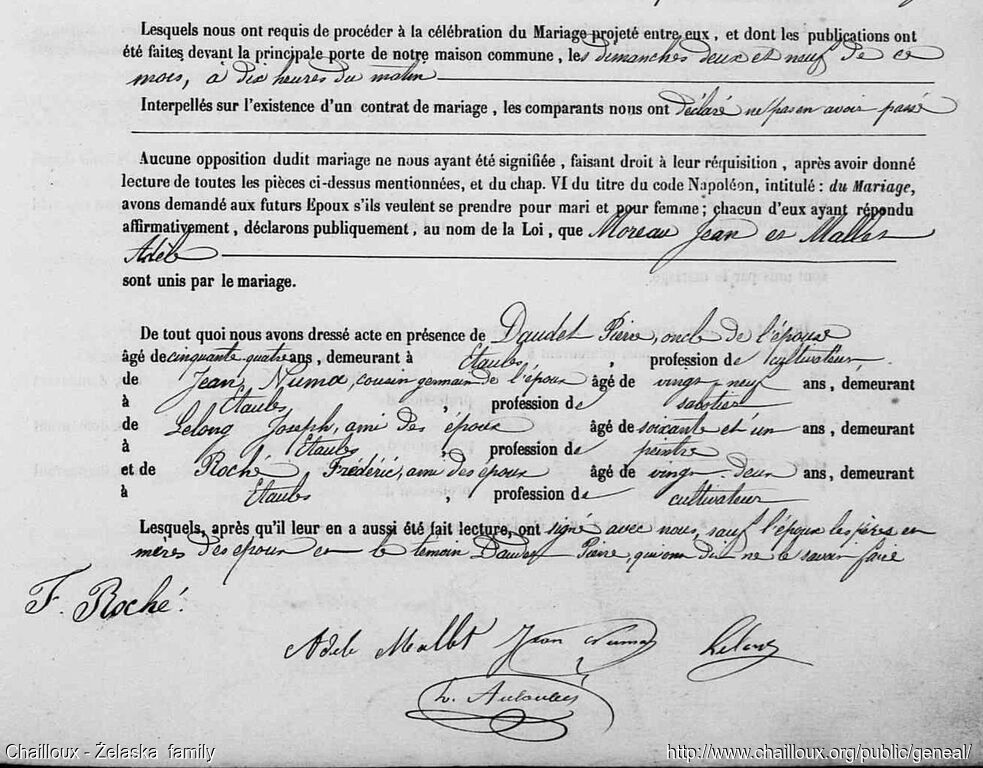 Lesquels nous ont requis de procéder à la célébration du Mariage projeté entre eux, et dont les publications ont
été faites devant la principale porte de notre maison commune, les dimanches deux et neuf de ce
mois, à dix heures du matin
Interpellés sur l'existence d'un contrat de mariage, les comparants nous ont déclaré ne pas en avoir passé
Aucune opposition dudit mariage ne nous ayant été signifiée, faisant droit à leur réquisition, après avoir donné
lecture de toutes les pièces ci-dessus mentionnées, et du chap. VI du titre du code Napoléon, intitulé : du Mariage,
avons demandé aux futurs Epoux s'ils veulent se prendre pour mari et pour femme ; chacun d'eux ayant répondu
affirmativement, déclarons publiquement, au nom de la Loi, que Moreau Jean et Mallet
Adèle
sont unis par le mariage.
De tout quoi nous avons dressé acte en présence de Daudet Pierre, oncle de l'époux
âgé de cinquante quatre ans, demeurant à Etaules, profession de cultivateur.
de Jean, Numa, cousin germain de l'époux âgé de vingt-neuf ans, demeurant
à Etaules, profession de sabotier
de Lelong Joseph, ami des époux âgé de soixante et un ans, demeurant
à Etaules profession de peintre
et de Roché, Frédéric, ami des époux âgé de vingt-deux ans, demeurant
à Etaules profession de cultivateur
Lesquels, après qu'il leur en a aussi été fait lecture, ont signé avec nous, sauf l'époux les pères et
mères des époux et le témoin Daudet Pierre, qui ont dit ne le savoir faire
F. Roché.
Adele Mallet Jean Numa Lelong
Chailloux - Želaska family http://www.chailloux.org/public/geneal/